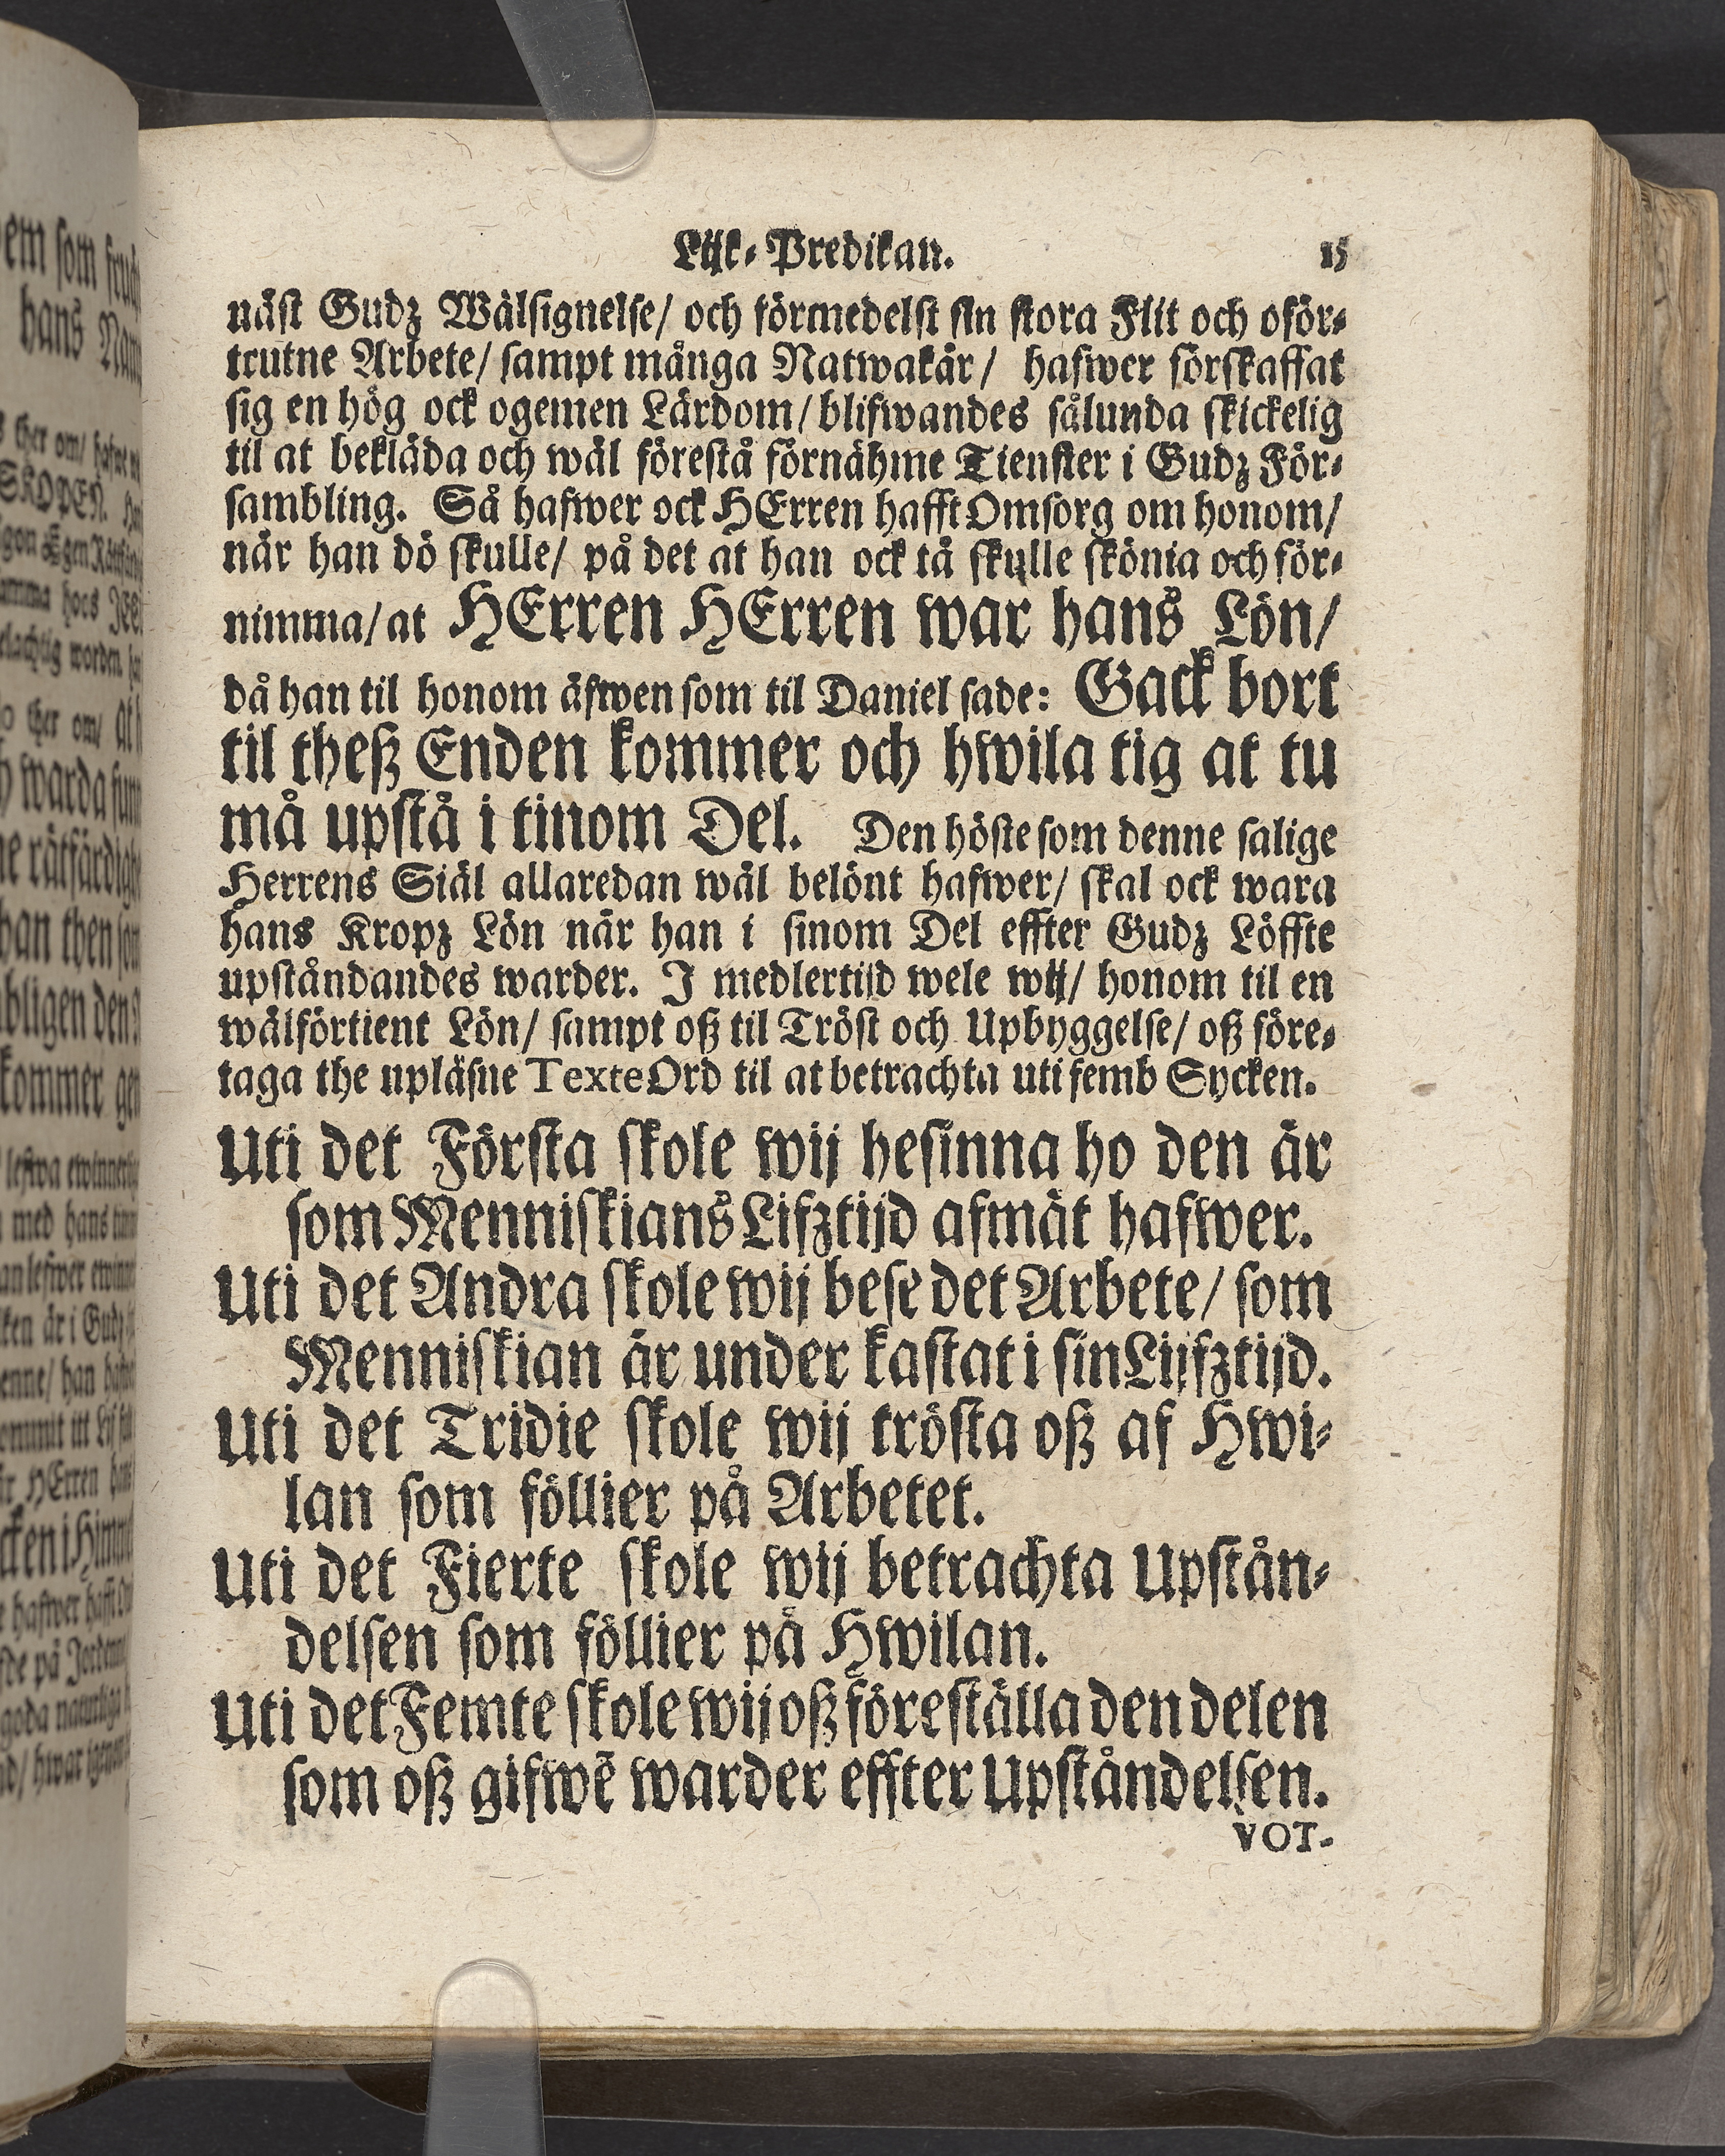 Lijk-Predikan. 15
näst Gudz Wälsignelse/ och förmedelst sin stora Flit och oför-
trutne Arbete/ sampt många Natwakär/ hafwer förskaffat
sig en hög ock ogemen Lärdom/ blifwandes sålunda skickelig
til at bekläda och wäl förestå förnähme Tienster i Gudz För-
sambling. Så hafwer ock HErren hafft Omsorg om honom/
när han dö skulle/ på det at han ock tå skulle skönia och för-
nimma/ at HErren HErren war hans Lön/
då han til honom äfwen som til Daniel sade: Gack bort
til theß Enden kommer och hwila tig at tu
må upstå i tinom Del. Den höste som denne salige
Herrens Siäl allaredan wäl belönt hafwer/ skal ock wara
hans Kropz Lön när han i sinom Del effter Gudz Löffte
upståndandes warder. I medlertijd wele wij/ honom til en
wälförtient Lön/ sampt oß til Tröst och Upbyggelse/ oß före-
taga the upläsne Texte Ord til at betrachta uti femb Sycken.
Uti det Första skole wij besinna ho den är
som Menniskians Lifztijd afmät hafwer.
Uti det Andra skole wij bese det Arbete/ som
Menniskian är under kastat i sin Lijfztijd.
Uti det Tridie skole wij trösta oß af Hwi-
lan som föllier på Arbetet.
Uti det Fierte skole wij betrachta Upstån-
delsen som föllier på Hwilan.
Uti det Femte skole wij oß föreställa den delen
som oß gifwẽ warder effter Upståndelsen.
VOT-